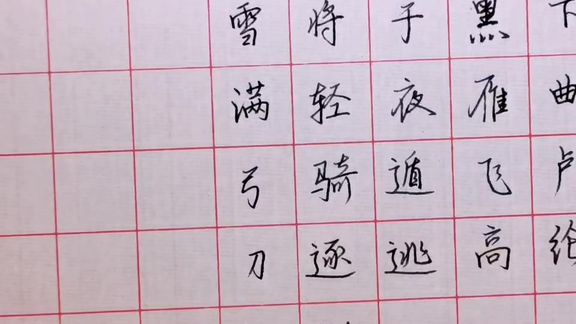 下曲卢纶
黑雁飞高
于夜遁逃
将轻骑逐
雪满弓刀